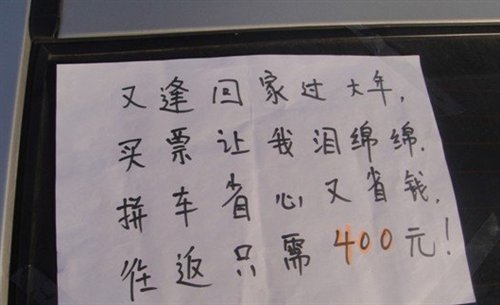 又逢回家过大年,
买票让我泪绵绵.
拼车省心又省钱,
往返只需400元!